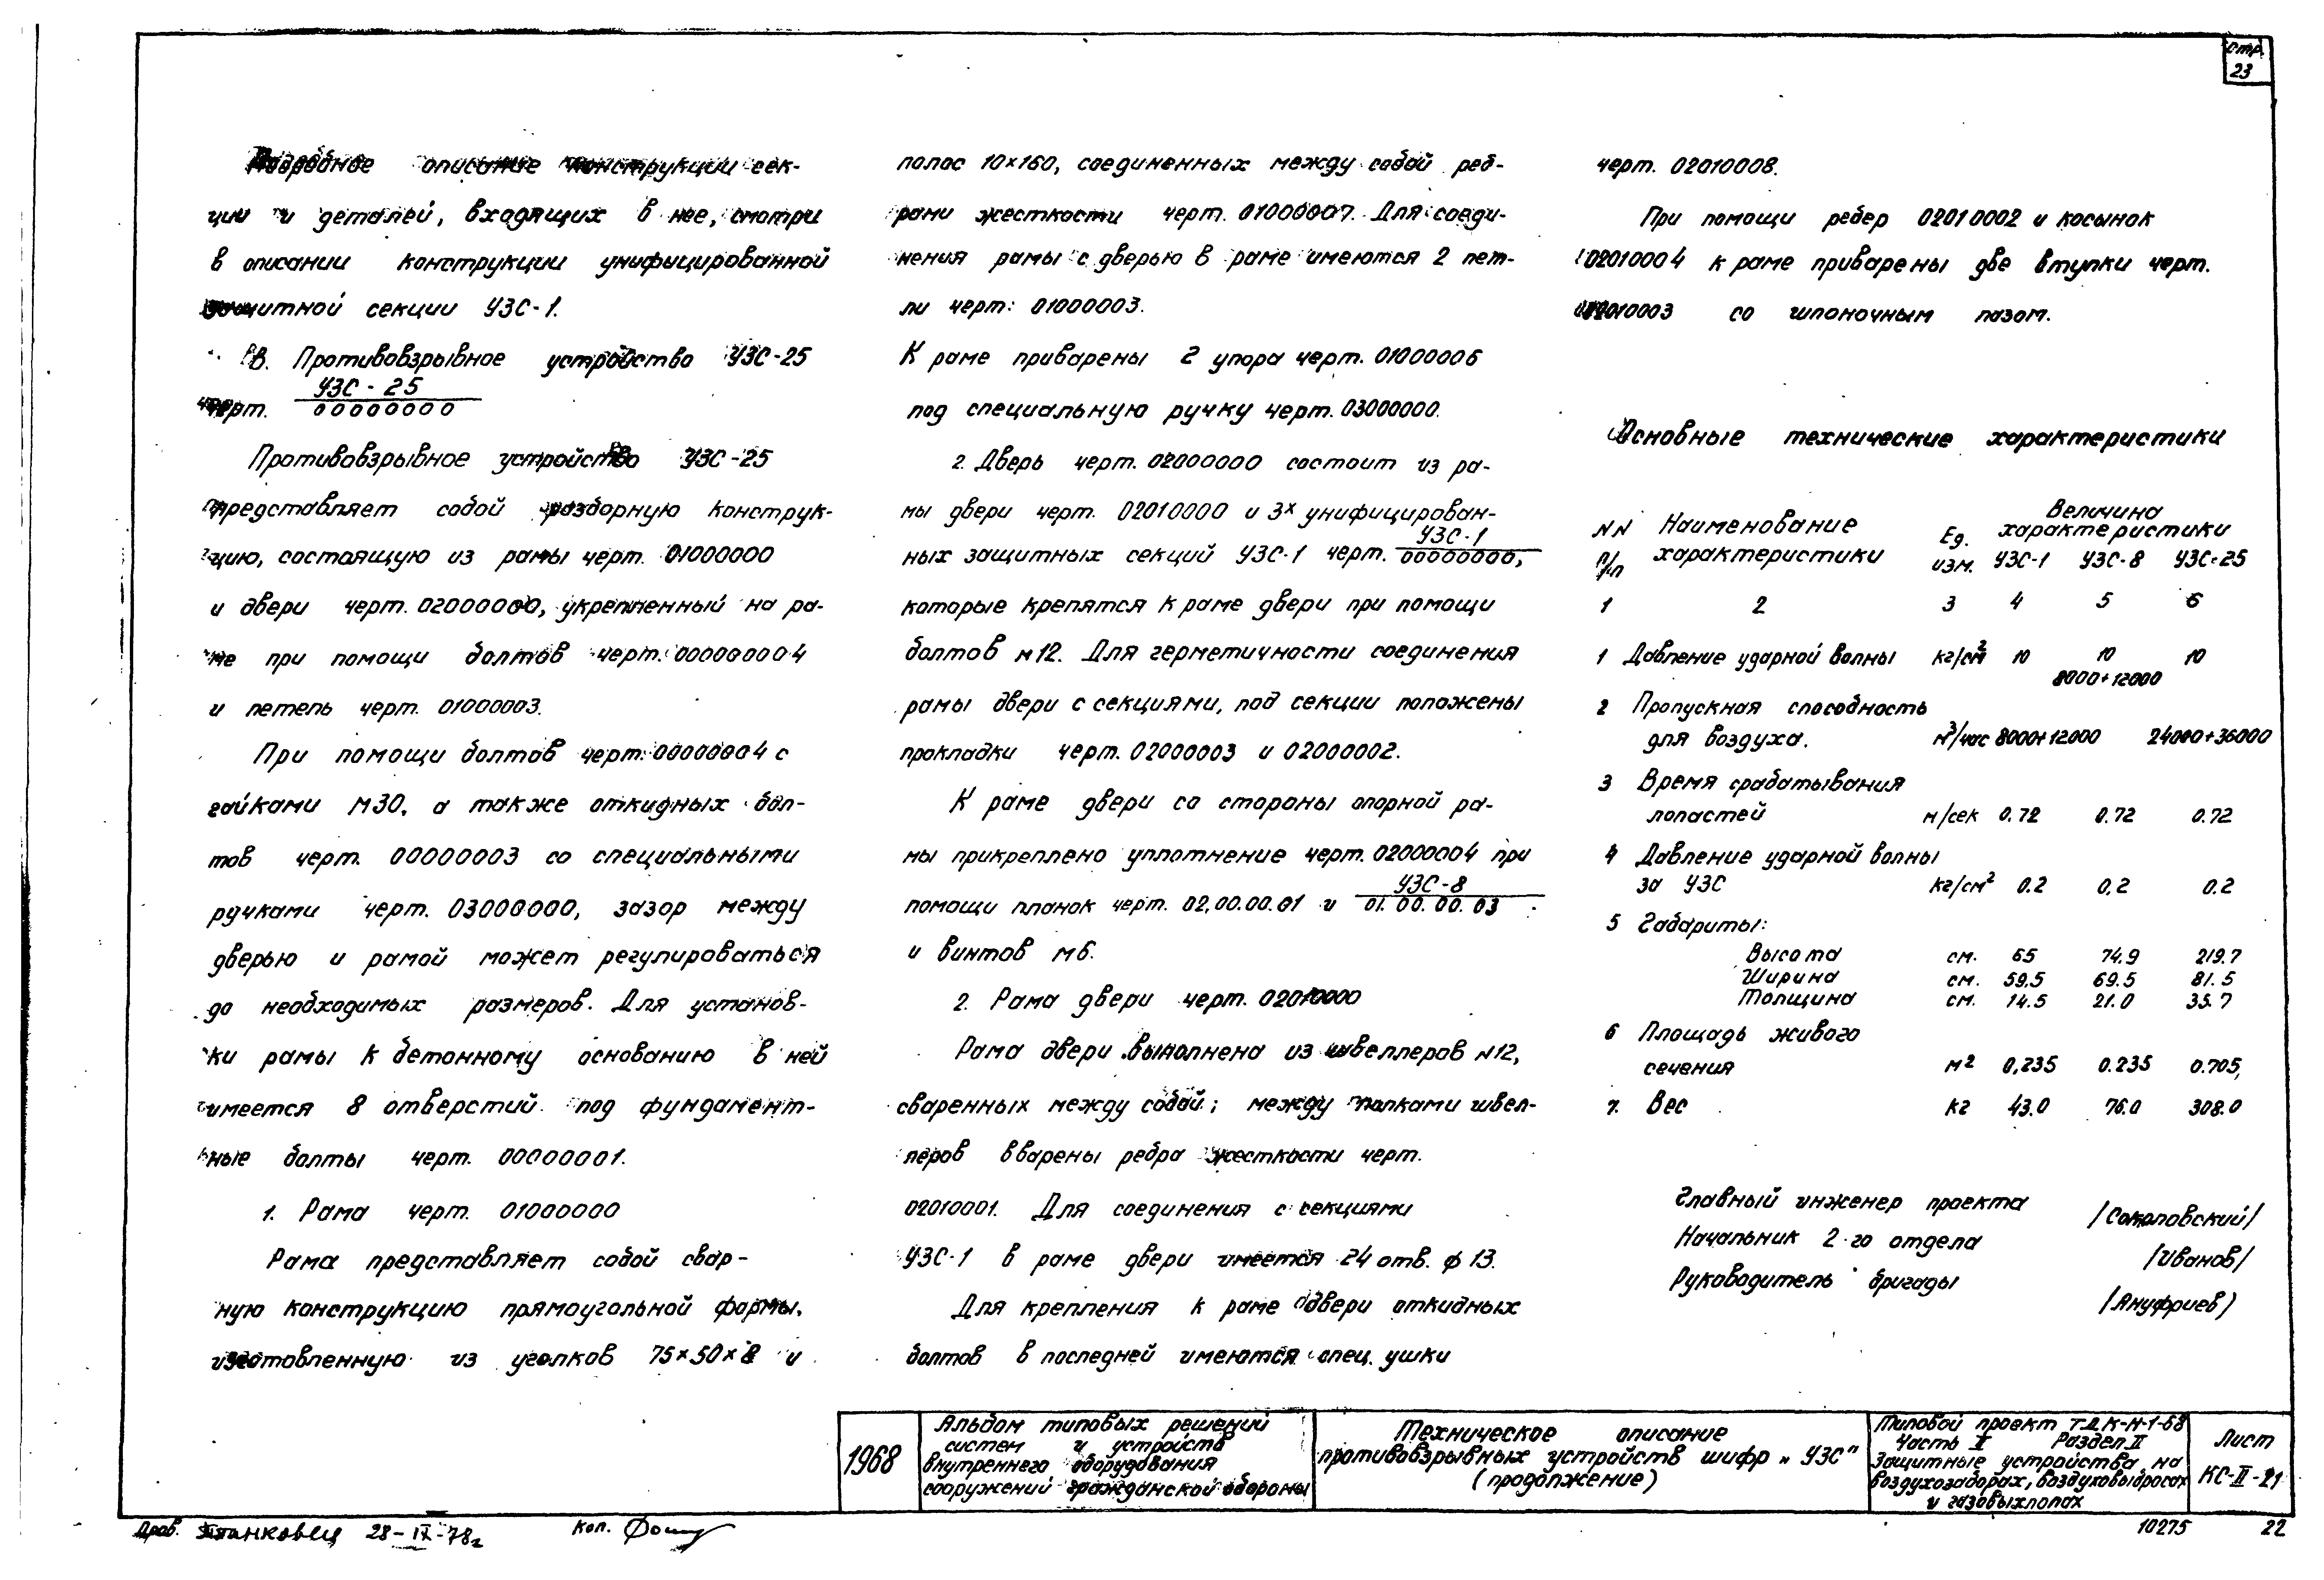 Стр.
23
Подробное описание конструкции сек-
ции и деталей, входящих в нее, смотри
в описании конструкции унифицированной
защитной секции УЗС-1.
В. Противовзрывное устройство УЗС-25
черт. УЗС-25
00000000
Противовзрывное устройство УЗС-25
представляет собой разборную конструк-
цию, состоящую из рамы черт. 01000000
и двери черт. 02000000, укрепленный на ра-
ме при помощи болтов черт. 000000004
и петель черт. 01000003.
При помощи болтов черт. 00000004 с
гайками М30, а также откидных бол-
тов черт. 00000003 со специальными
ручками черт. 03000000, зазор между
дверью и рамой может регулироваться
до необходимых размеров. Для установ-
ки рамы к бетонному основанию в ней
имеется 8 отверстий под фундамент-
ные болты черт. 00000001.
1. Рама черт. 01000000
Рама представляет собой свар-
ную конструкцию прямоугольной формы,
изготовленную из уголков 75×50×8 и
полос 10×160, соединенных между собой реб-
рами жесткости черт. 01000007. Для соеди-
нения рамы с дверью в раме имеются 2 пет-
ли черт: 01000003.
К раме приварены 2 упора черт. 01000006
под специальную ручку черт. 03000000.
2. Дверь черт. 02000000 состоит из ра-
мы двери черт. 02010000 и 3х унифицирован-
ных защитных секций УЗС-1 черт. УЗС-1
00000000,
которые крепятся к раме двери при помощи
болтов м12. Для герметичности соединения
рамы двери с секциями, под секции положены
прокладки черт. 02000003 и 02000002.
К раме двери со стороны опорной ра-
мы прикреплено уплотнение черт. 02000004 при
помощи планок черт. 02.00.00.01 и УЗС-8
01.00.00.03
и винтов м6.
2. Рама двери черт. 02010000
Рама двери выполнена из швеллеров N12,
сваренных между собой; между полками швел-
леров вварены ребра жесткости черт.
02010001. Для соединения с секциями
УЗС-1 в раме двери имеется 24 отв. ф 13.
Для крепления к раме двери откидных
болтов в последней имеются спец. ушки
черт. 02010008.
При помощи ребер 02010002 и косынок
02010004 к раме приварены две втулки черт.
02010003 со шпоночным пазом.
Основные технические характеристики
NN Наименование Ед. Величина
п/п характеристики изм. характеристики
УЗС-1 УЗС-8 УЗС-25
1 2 3 4 5 6
1 Давление ударной волны кг/см2 10 10 10
8000÷12000
2 Пропускная способность
для воздуха. м3/час 8000÷12000 24000÷36000
3 Время срабатывания
лопастей м/сек 0.72 0.72 0.72
4 Давление ударной волны
за УЗС кг/см2 0.2 0,2 0.2
5 Габариты:
Высота см. 65 74.9 219.7
Ширина см. 59.5 69.5 81.5
Толщина см. 14.5 21.0 35.7
6 Площадь живого
сечения м2 0,235 0.235 0.705,
7. Вес кг 43.0 76.0 308.0
Главный инженер проекта /Соколовский/
Начальник 2-го отдела /Иванов/
Руководитель бригады /Ануфриев)
1968
Альбом типовых решений
систем и устройств
внутреннего оборудования
сооружений гражданской обороны
Техническое описание
противовзрывных устройств шифр „УЗС"
(продолжение)
Типовой проект Т-ДК-Н-1-68
Часть II Раздел II
Защитные устройства на
воздухозаборах, воздуховыбросах
и газовыхлопах
Лист
КС-II-21
28-IX-78г
Коп.
10275
22